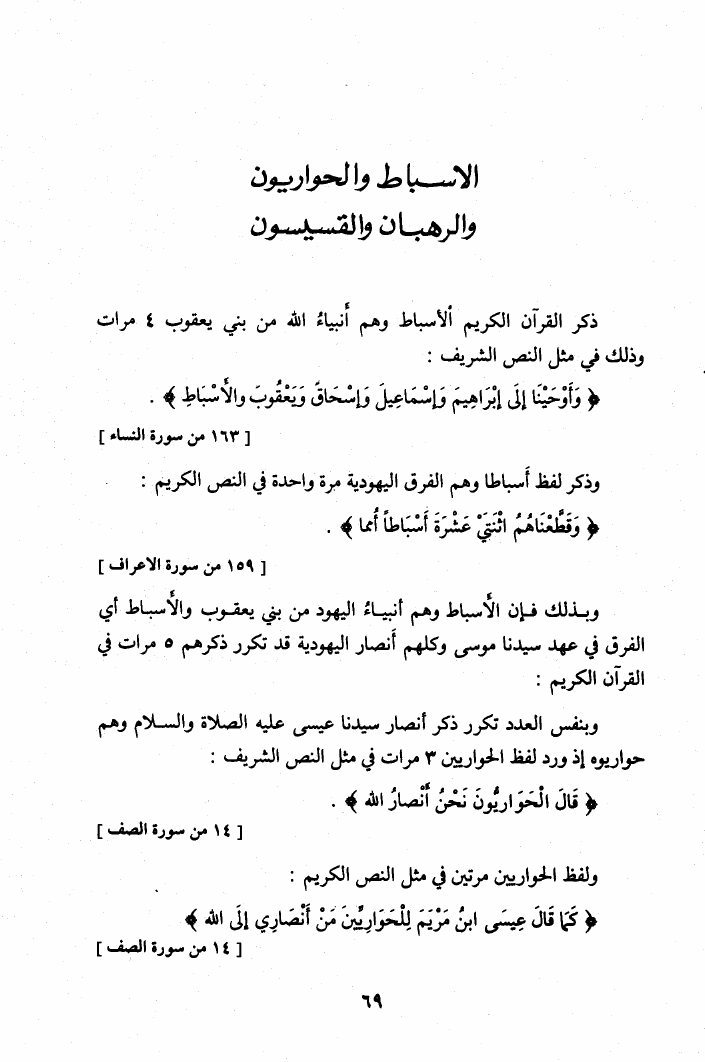 الاسباط والحواريون
والرهبان والقسيسون
ذكر القرآن الكريم ألأسباط وهم أنبياءُ الله من بني يعقوب ٤ مرات
وذلك في مثل النص الشريف :
﴿ وَأَوْحَيْنَا إِلَى إِبْرَاهِيمَ وَإِسْمَاعِيلَ وَإِسْحَاقَ وَيَعْقُوبَ والأَسْبَاطِ ﴾ .
[ ١٦٣ من سورة النساء ]
وذكر لفظ أسباطا وهم الفرق اليهودية مرة واحدة في النص الكريم :
﴿ وَقَطَّعْنَاهُمُ اثْنَتَيْ عَشْرَةَ أَسْبَاطاً أُمما ﴾ .
[ ١٥٩ من سورة الاعراف ]
وبذلك فإن الأسباط وهم أنبياءُ اليهود من بني يعقوب والأسباط أي
الفرق في عهد سيدنا موسى وكلهم أنصار اليهودية قد تكرر ذكرهم ٥ مرات في
القرآن الكريم :
وبنفس العدد تكرر ذكر أنصار سيدنا عيسى عليه الصلاة والسلام وهم
حواريوه إذ ورد لفظ الحواريين ٣ مرات في مثل النص الشريف :
﴿ قَالَ الْحَوَارِيُّونَ نَحْنُ أَنْصارُ الله ﴾ .
[ ١٤ من سورة الصف ]
ولفظ الحواريين مرتين في مثل النص الكريم :
﴿ كَمَا قَالَ عِيسَى ابنُ مَرْيَمَ لِلْحَوَارِيِّينَ مَنْ أَنْصَارِي إِلَى الله ﴾
[ ١٤ من سورة الصف ]
٦٩